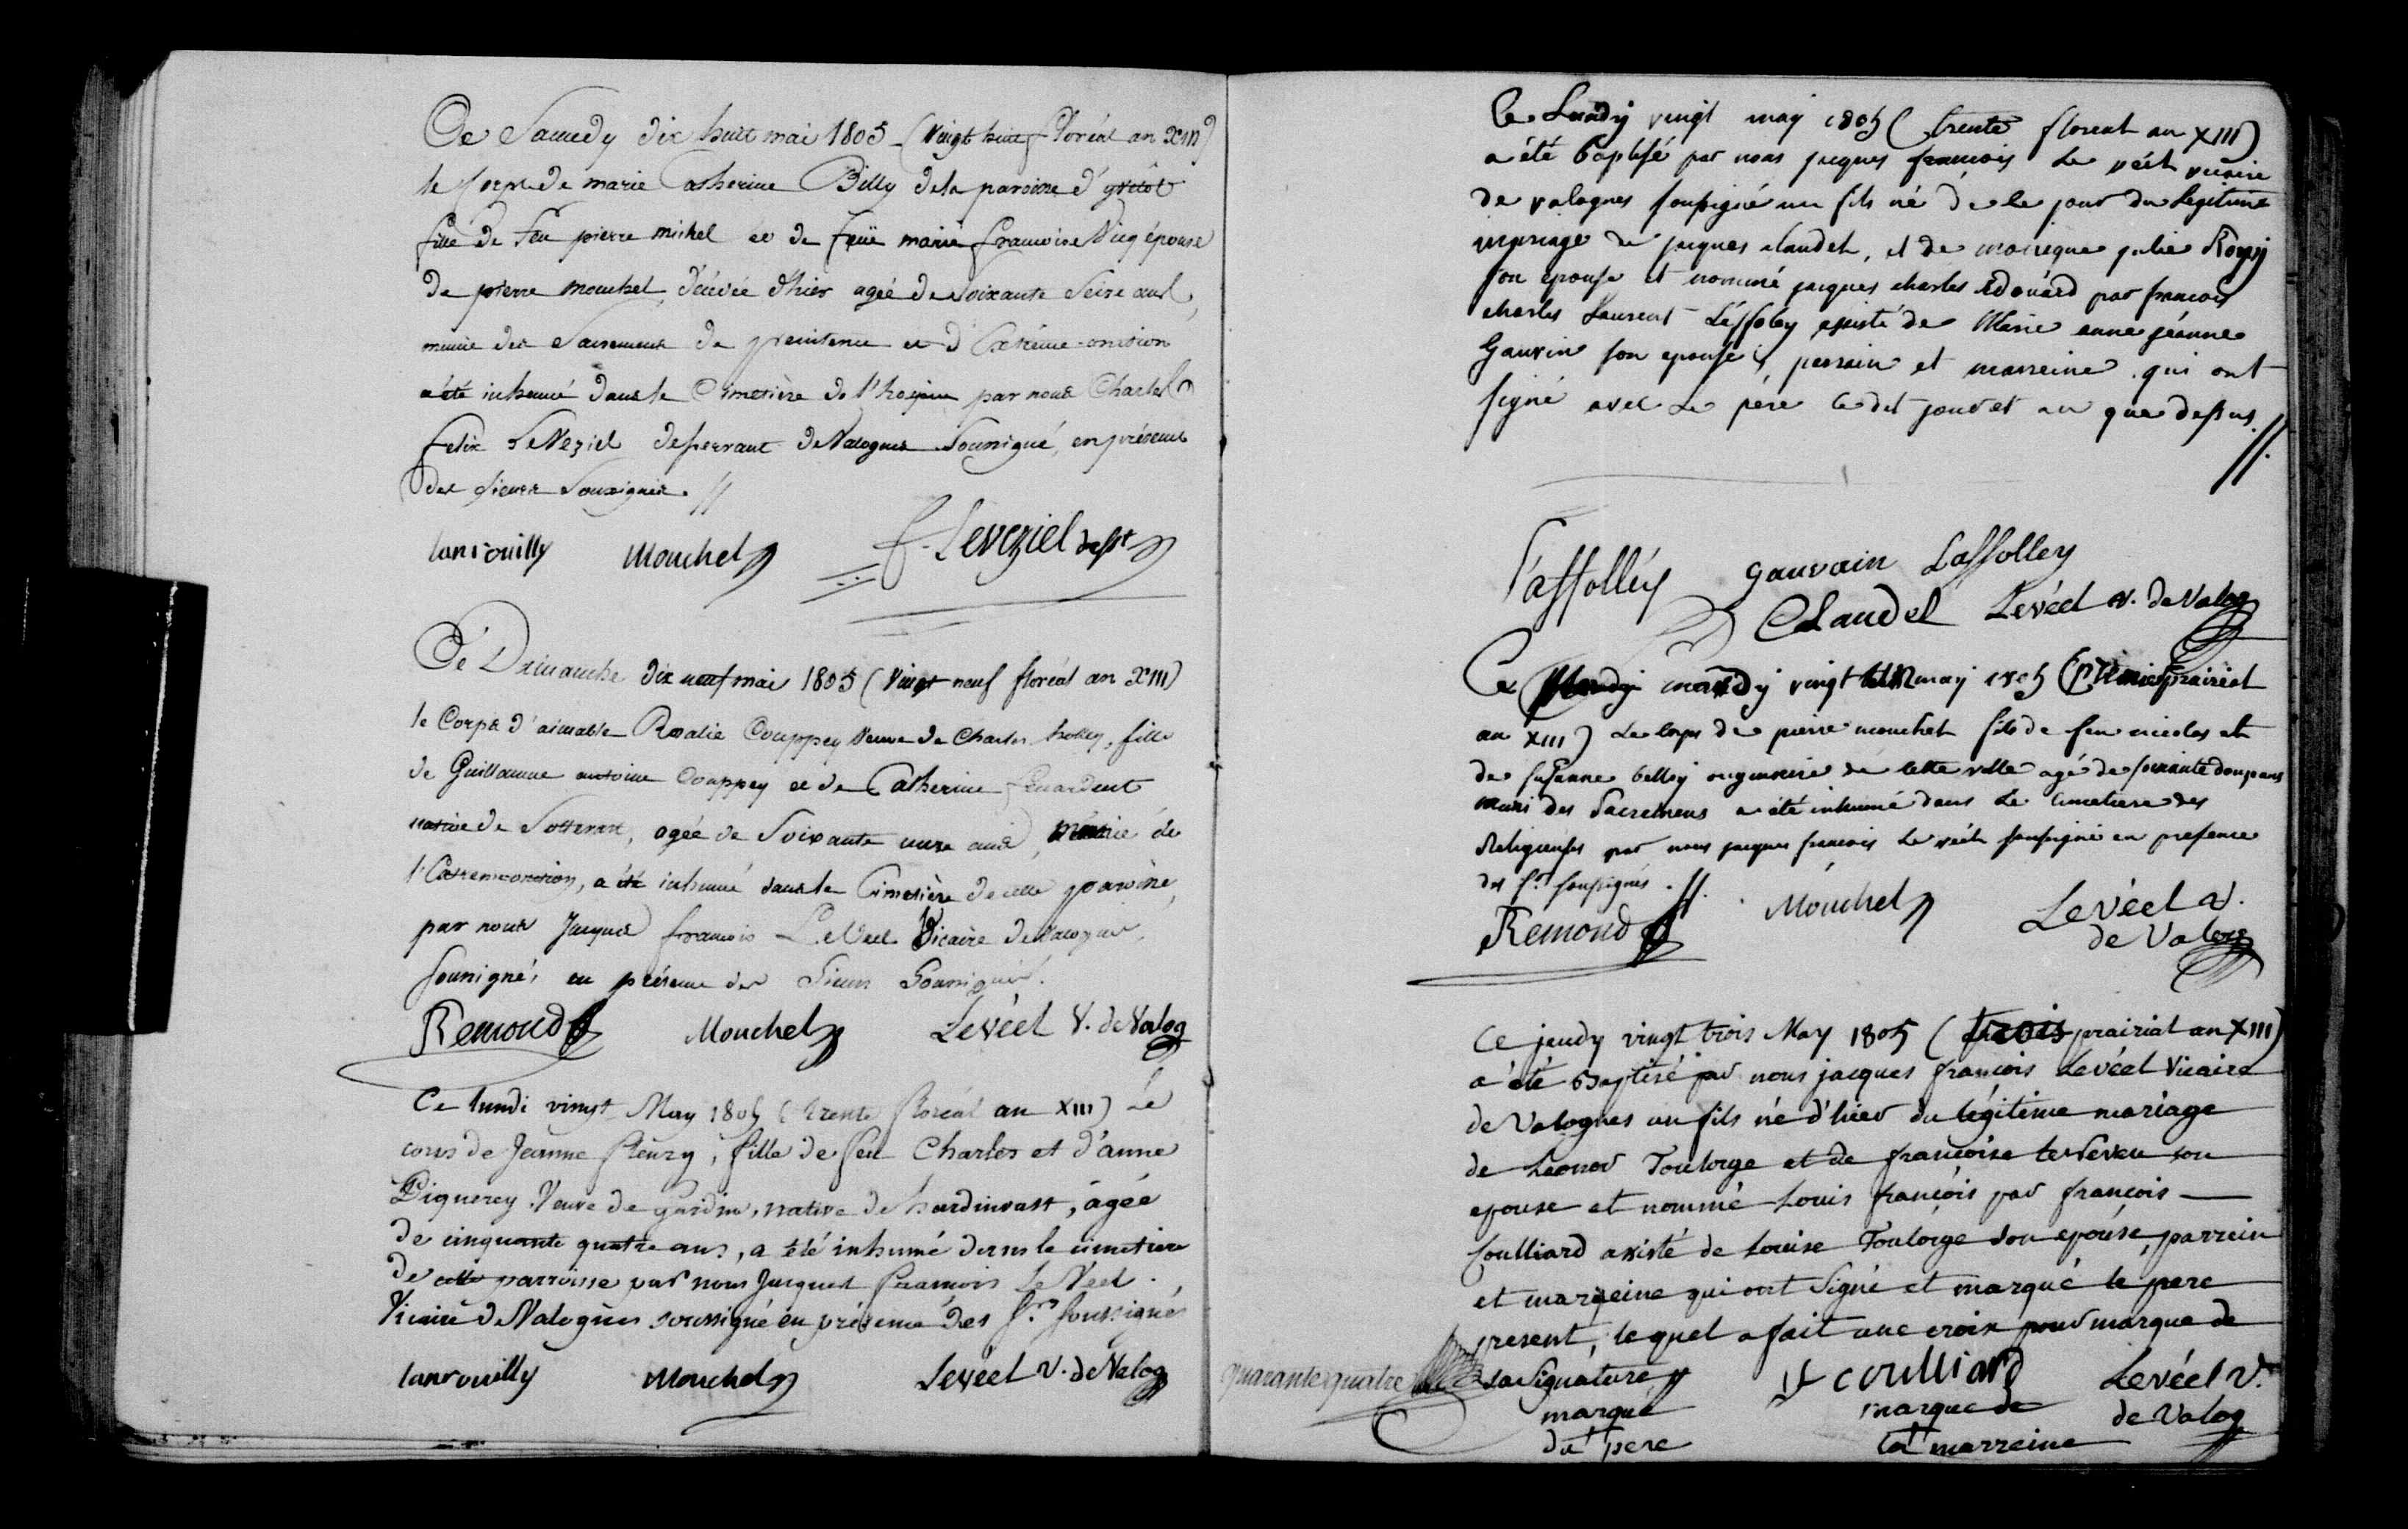 Ce Samedy dix huit mai 1805 (vingt huit floréal an XIII)
le Corps de marie Catherine Billy de la paroisse d'yvetot
fille de feu pierre michel et de feüe marie francoise épouse
de pierre mouchel, décédée d'hier agée de Soixante Seize ans,
munie des Sacremens de penitence et d'Extrême-onction
a été inhumé dans le Cimetière de l'hospice par nous Charles
felix LeVeziel desservant de Valognes Soussigné, en présence
des sieurs Soussignés. //
Lanrouilly Mouchel f. Leveziel desst
Ce Dimanche dix neuf mai 1805 (vingt neuf floréal an XIII)
le Corps d'aimable Rosalie Couppey veuve de Charles holley, fille
de Guillaume antoine Couppey et de Catherine Lenardent
native de , agée de Soixante onze ans, munie de
l'Extremeonction, a été inhumé dans le Cimetière de cette paroisse,
par nous Jacques francois LeVéel Vicaire de Valognes,
soussigné, en présence des Sieurs Soussignés.
Remond Mouchel Levéel V. de Valog
Ce lundi vingt May 1805 (trente floréal an XIII) Le
corps de Jeanne fleury, fille de feu Charles et d'anne
Diguerey veuve de jardin, native de hardinvast, âgée
de cinquante quatre ans, a été inhumé dans le cimetiere
de cette parroisse par nous Jacques François LeVéel.
Vicaire de Valognes soussigné en présence des Srs soussignés
Lanrouilly Mouchel Levéel V. de Valog
Ce Lundy vingt may 1805 (trente floreal an XIII)
a été baptisé par nous jacques francois Le véel vicaire
de valognes soussigné un fils né de ce jour du Legitime
mariage de jacques claudel, et de monique julie Royer
son epouse et nommé jacques charles Edouard par francois
charles Laurent Laffoley assisté de Marie anne jéanne
Gauvin son epouse, parrain et marreine qui ont
signé avec Le père ce dit jour et an que dessus. //.
Laffolléy gauvain Laffolley
Claudel Levéel V. de Valog
Ce mardy vingt un may 1805 (premier prairial
an XIII) Le corps de pierre mouchel fils de feu nicolas et
de suzanne belley originaire de cette ville agé de soixante douze ans
muni des Sacremens a été inhumé dans Le cimetiere des
Religieuses par nous jacques francois Le véel soussigné en presence
des Srs soussignés. //.
Remond Mouchel Levéel V.
de Valog
Ce jeudy vingt trois May 1805 (trois prairial an XIII)
a été Baptisé par nous jacques françois Levéel Vicaire
de Valognes un fils né d'hier du légitime mariage
de Léonor Toulorge et de françoise leNeveu son
epouse et nommé Louis françois par françois
Coulliard assisté de Louise Toulorge son epouse, parrein
et marreine qui ont Signé et marqué le pere
present, lequel a fait une croix pour marque de
quarante quatre sa Signature // coulliard Levéel V.
marque marque de de Valog
du pere la marreine